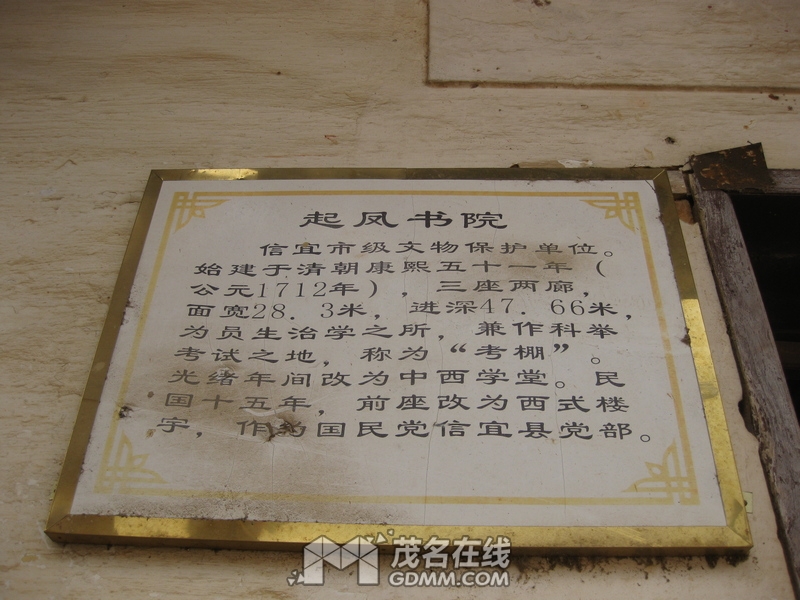 起凤书院
信宜市级文物保护单位。
始建于清朝康熙五十一年（
公元1712年），三座两廊，
面宽28.3米，进深47.66米，
为员生治学之所，兼作科举
考试之地，称为“考棚”。
光绪年间改为中西学堂。民
国十五年，前座改为西式楼
宇，作为国民党信宜县党部。
茂名在线
GDMM.COM